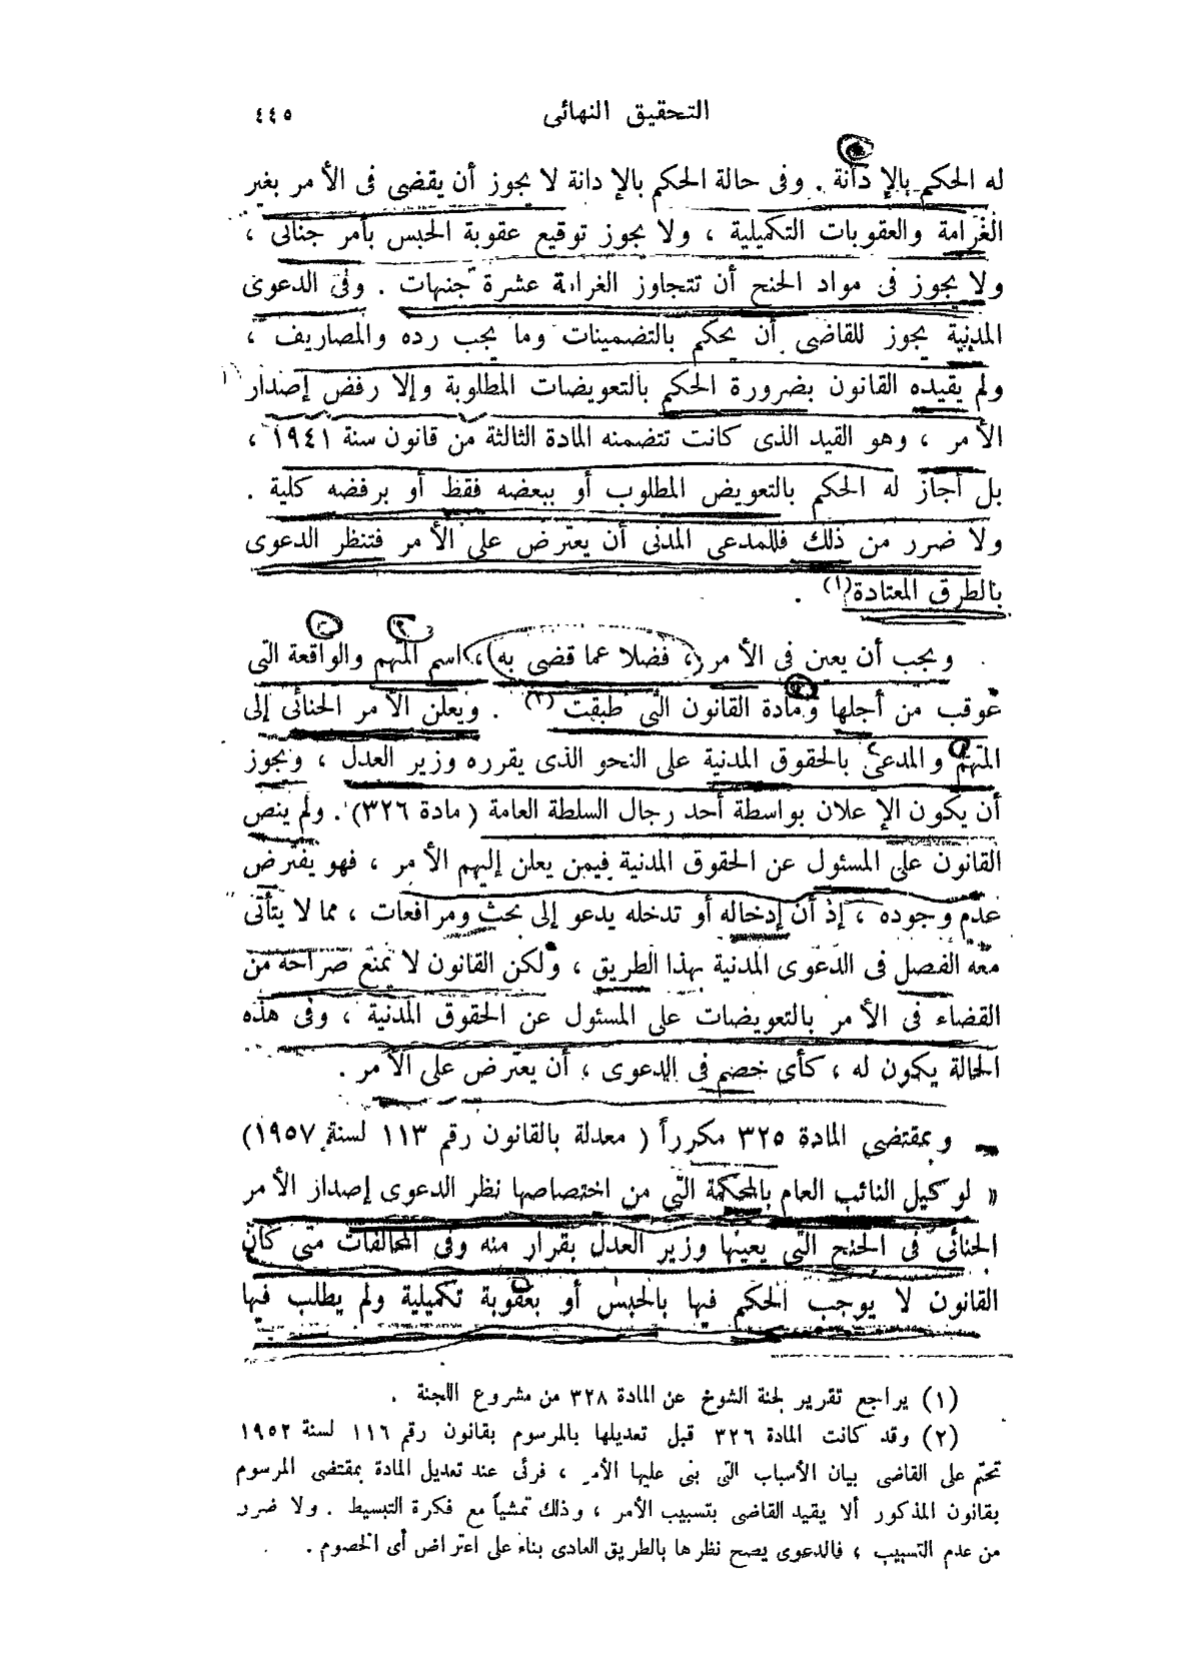 التحقيق النهائى ٤٤٥
له الحكم بالإدانة . وفى حالة الحكم بالإدانة لا يجوز أن يقضى فى الأمر بغير
الغرامة والعقوبات التكميلية ، ولا يجوز توقيع عقوبة الحبس بأمر جنائى ،
ولا يجوز فى مواد الجنح أن تتجاوز الغرامة عشرة جنيهات . وفى الدعوى
المدنية يجوز للقاضى أن يحكم بالتضمينات وما يجب رده والمصاريف ،
ولم يقيده القانون بضرورة الحكم بالتعويضات المطلوبة وإلا رفض إصدار
الأمر ، وهو القيد الذى كانت تتضمنه المادة الثالثة من قانون سنة ١٩٤١ ،
بل أجاز له الحكم بالتعويض المطلوب أو ببعضه فقط أو برفضه كلية .
ولا ضرر من ذلك فللمدعى المدنى أن يعترض على الأمر فتنظر الدعوى
بالطرق المعتادة(١) .
ويجب أن يعين فى الأمر ، فضلا عما قضى به ، اسم المتهم والواقعة التى
عوقب من أجلها ومادة القانون التى طبقت (٢) . ويعلن الأمر الجنائى إلى
المتهم والمدعى بالحقوق المدنية على النحو الذى يقرره وزير العدل ، ويجوز
أن يكون الإعلان بواسطة أحد رجال السلطة العامة ( مادة ٣٢٦) . ولم ينص
القانون على المسئول عن الحقوق المدنية فيمن يعلن إليهم الأمر ، فهو يفترض
عدم وجوده ، إذ أن إدخاله أو تدخله يدعو إلى بحث ومرافعات ، مما لا يتأتى
معه الفصل فى الدعوى المدنية بهذا الطريق ، ولكن القانون لا يمنع صراحة من
القضاء فى الأمر بالتعويضات على المسئول عن الحقوق المدنية ، وفى هذه
الحالة يكون له ، كأى خصم فى الدعوى ، أن يعترض على الأمر .
وبمقتضى المادة ٣٢٥ مكرراً ( معدلة بالقانون رقم ١١٣ لسنة ١٩٥٧)
« لوكيل النائب العام بالمحكمة التى من اختصاصها نظر الدعوى إصدار الأمر
الجنائى فى الجنح التى يعينها وزير العدل بقرار منه وفى المخالفات متى كان
القانون لا يوجب الحكم فيها بالحبس أو بعقوبة تكميلية ولم يطلب فيها
(١) يراجع تقرير لجنة الشوخ عن المادة ٣٢٨ من مشروع اللجنة .
(٢) وقد كانت المادة ٣٢٦ قبل تعديلها بالمرسوم بقانون رقم ١١٦ لسنة ١٩٥٢
تحتم على القاضى بيان الأسباب التى بنى عليها الأمر ، فرئى عند تعديل المادة بمقتضى المرسوم
بقانون المذكور ألا يقيد القاضى بتسبيب الأمر ، وذلك تمشياً مع فكرة التبسيط . ولا ضرر
من عدم التسبيب ، فالدعوى يصح نظرها بالطريق العادى بناء على اعتراض أى الخصوم .